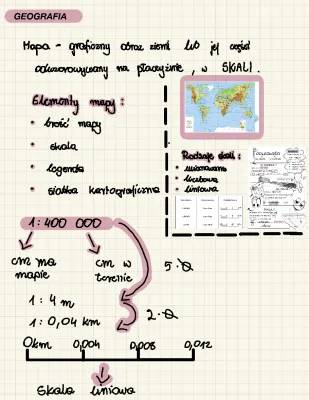 GEOGRAFIA
Mapa - graficzny obraz ziemi lub jej części
odwzorowywany na płaszyźnie, w SKALI.
Elementy mapy:
• treść mapy
• skala
• legenda
• siatka kartograficzna
Rodzaje skali:
• mianowana
• liczbowa
• liniowa
1:400 000
cm na mapie
cm w terenie
5·0
1 : 4 m
1 : 0,04 km
2·0
0km 0,004 0,008 0,012
Skala liniowa